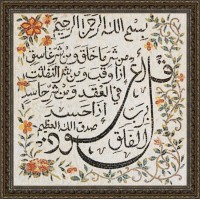 بسم الله الرحمن الرحيم
قل أعوذ برب الفلق
من شر ما خلق ومن شر غاسق
إذا وقب ومن شر النفاثات
في العقد ومن شر حاسد
إذا حسد
صدق الله العظيم